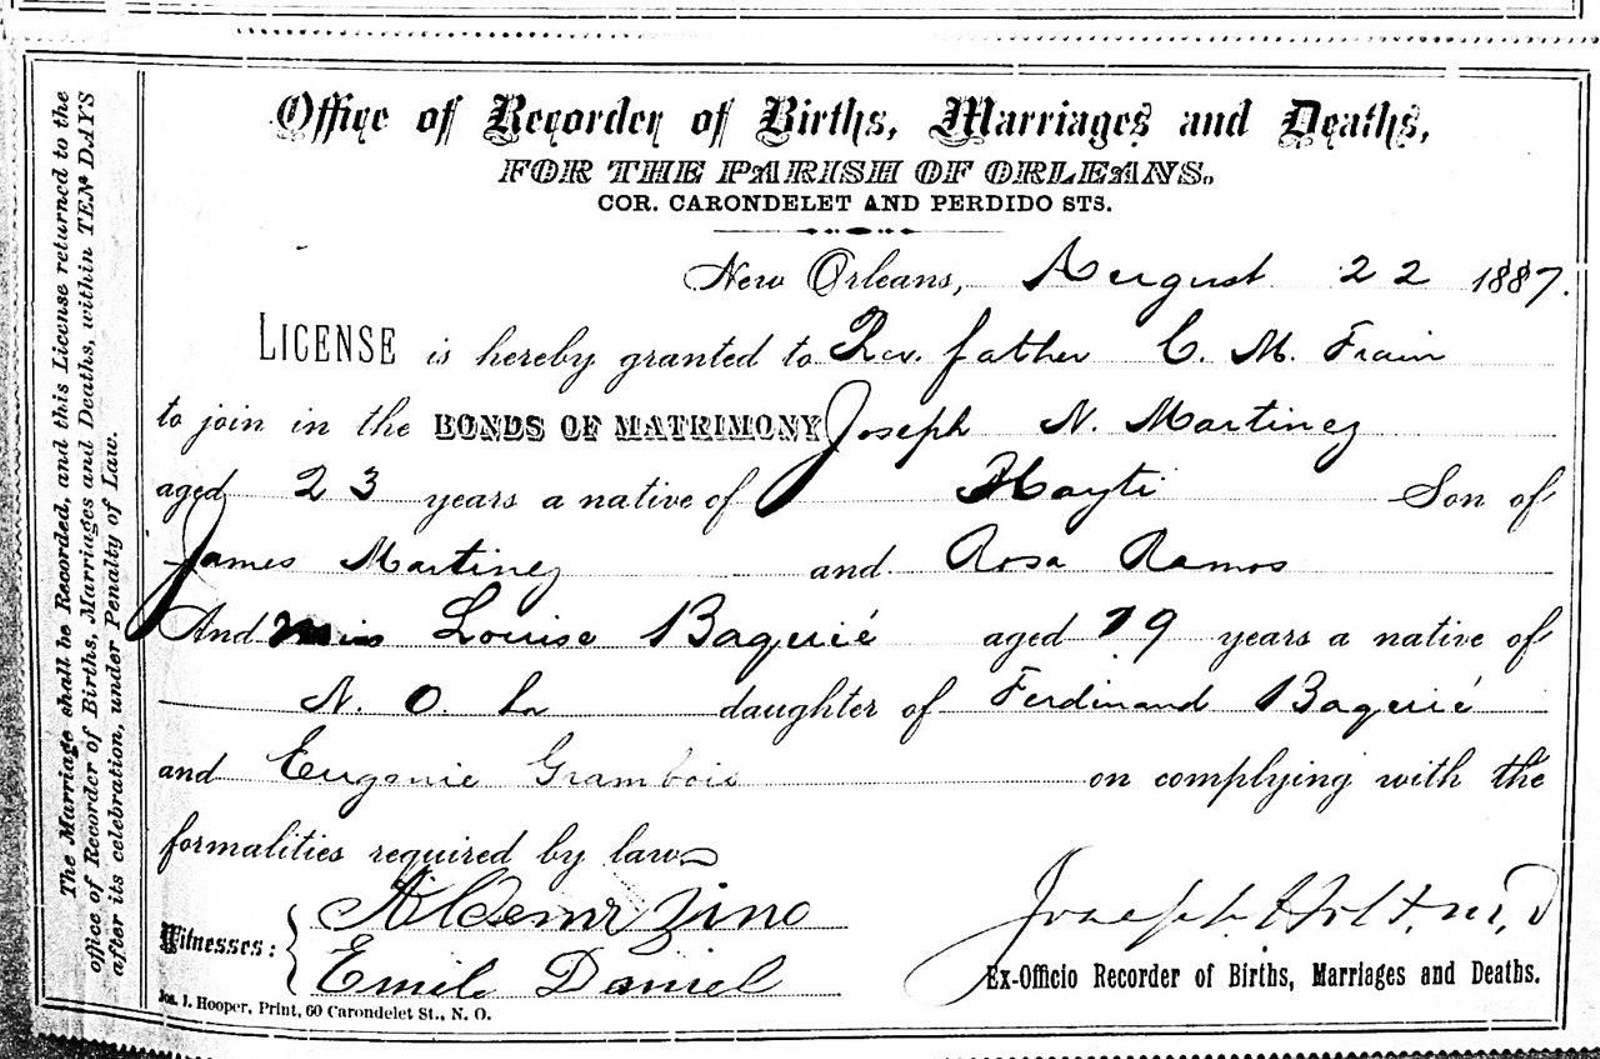 Office of Recorder of Births, Marriages and Deaths,
FOR THE PARISH OF ORLEANS.
COR. CARONDELET AND PERDIDO STS.
New Orleans, August 22 1887.
LICENSE is hereby granted to Rev. father C. M. Frain
to join in the BONDS OF MATRIMONY Joseph N. Martinez
aged 23 years a native of Hayti Son of
James Martinez and Rosa Ramos
And Miss Louise Baquié aged 19 years a native of
N. O. La daughter of Ferdinand Baquié
and Eugenie Grambois on complying with the
formalities required by law
Witnesses:
Zino
Emile Daniel
Joseph Holt, M, D
Ex-Officio Recorder of Births, Marriages and Deaths.
Jos. J. Hooper, Print, 60 Carondelet St., N. O.
The Marriage shall be Recorded, and this License returned to the
office of Recorder of Births, Marriages and Deaths, within TEN DAYS
after its celebration, under Penalty of Law.